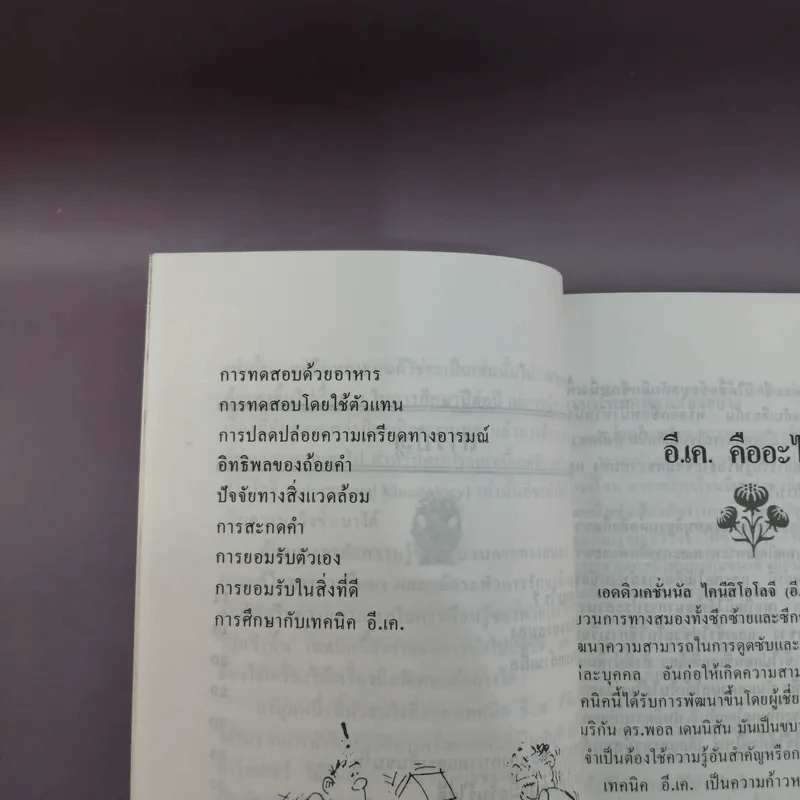 การทดสอบด้วยอาหาร
การทดสอบโดยใช้ตัวแทน
การปลดปล่อยความเครียดทางอารมณ์
อิทธิพลของถ้อยคำ
ปัจจัยทางสิ่งแวดล้อม
การสะกดคำ
การยอมรับตัวเอง
การยอมรับในสิ่งที่ดี
การศึกษากับเทคนิค อี.เค.
อี.เค. คืออะไ
เอดดิวเคชั่นนัล ไคนีสิโอโลจี (อี.
บวนการทางสมองทั้งซีกซ้ายและซีกข
ฒนาความสามารถในการดูดซับและ
ต่ละบุคคล อันก่อให้เกิดความสาม
คนิคนี้ได้รับการพัฒนาขึ้นโดยผู้เชี่ย
มริกัน ดร.พอล เดนนิสัน มันเป็นขบว
จำเป็นต้องใช้ความรู้อันสำคัญหรือก
เทคนิค อี.เค. เป็นความก้าวห